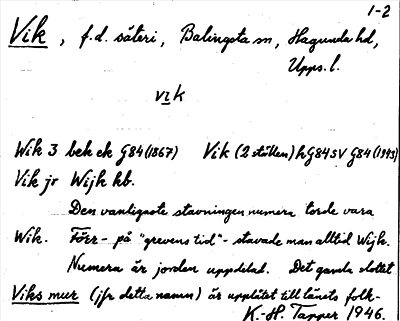 1-2
Vik, f.d. säteri, Balingsta sn, Hagunda hd,
Upps. l.
vik
Wik 3 bek ek G84 (1867) Vik (2 ställen) hG84SV G84 (1943)
Vik jr Wijk kb.
Den vanligaste stavningen numera torde vara
Wik. Förr - på "grevens tid" - stavade man alltid Wijk.
Numera är jorden uppdelad. Det gamla slottet
Viks mur (jfr detta namn) är upplåtet till länets folk-
K.-H. Tapper 1946.